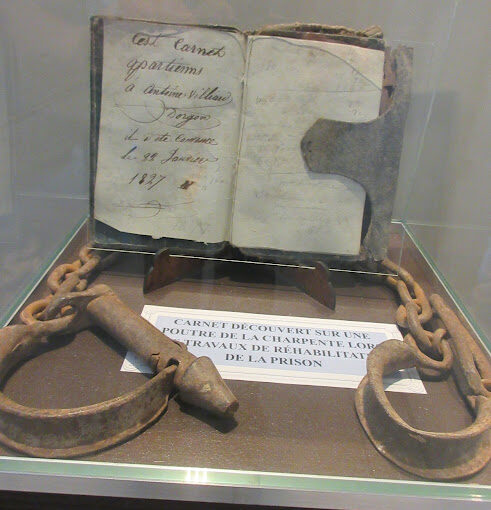 C'est Carnet
apartiens
à Antoine Villiard
Dorgon
il a été Comancé
le 22 Janvier
1827
CARNET DÉCOUVERT SUR UNE
POUTRE DE LA CHARPENTE LOR
TRAVAUX DE RÉHABILITAT
DE LA PRISON